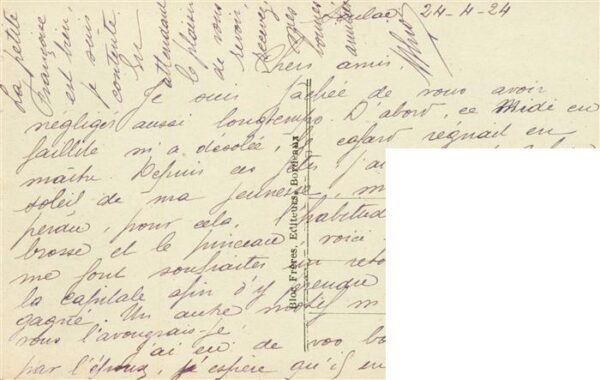 Soulac 24-4-24
Chers amis.
Je suis fâchée de vous avoir
négligés aussi longtemps. D'abord, ce Midi en
faillite m'a desolée, le cafard régnait en
maitre. Depuis
soleil de ma jeunesse, m
perdu, pour cela, l'habitud
brosse et le pinceau, voici
me font souhaiter un reto
la capitale afin d'y
gagné. Un autre motif m
vous l'avouerais-je
J'ai eu de vos
par l'époux, j'espère qu'il en
La petite
Françoise
est bien,
contente.
En
attendant
le plaisir
de vous
revoir,
recevez
mes
bonnes
amitiés
Bloc Frères, Editeurs, Bordeaux